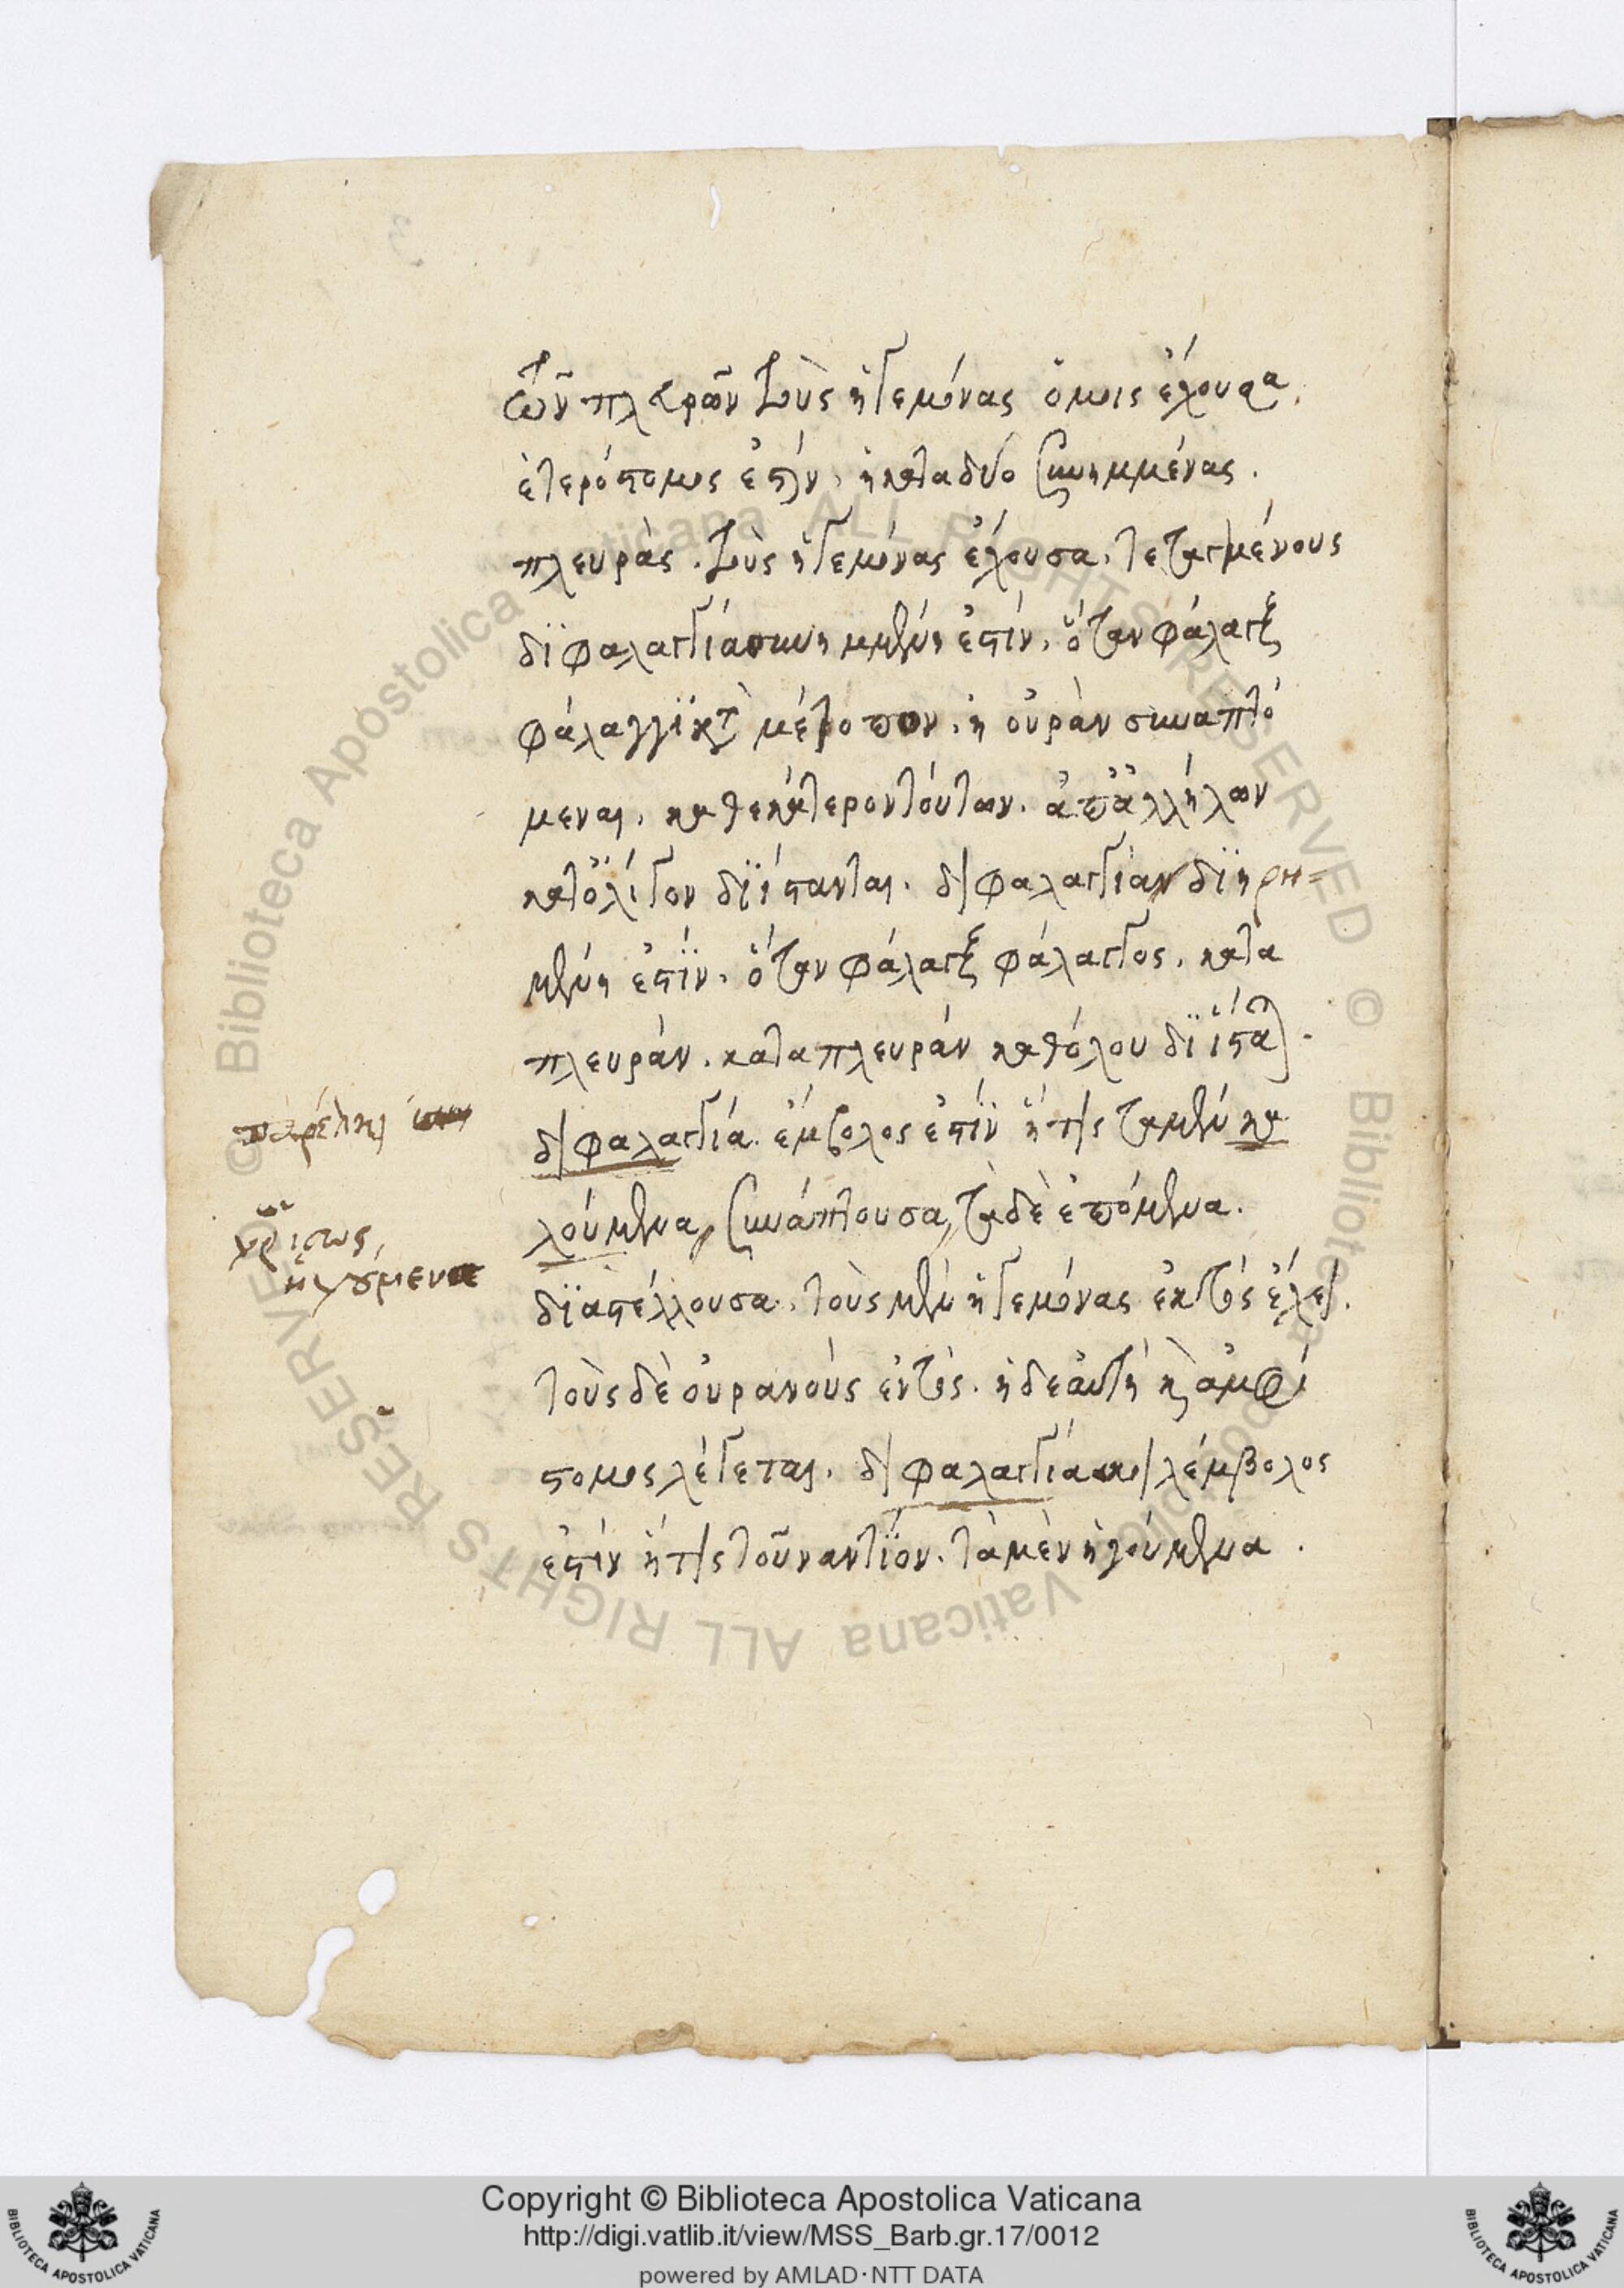 τῶν πλευρῶν τοὺς ἡγεμόνας ὅμοις ἔχουσα.
ἑτερόστομος ἐστὶν, ἡ κατα δύο συνημμένας.
πλευρὰς. τοὺς ἡγεμόνας ἔχουσα. τεταγμένους
δϊφαλαγγία συνημμένη ἐστίν, ὅταν φάλαγξ
φάλαγγϊ κατὰ μέτοπον. ἡ οὐρὰν συναπτό
μεναι. καθεκάτερον τούτων. ἀπἀλλήλων
κατὀλίγον δϊΐστανται. διφαλαγγίαν δϊηρη=
μένη ἐστΐν. ὅταν φάλαγξ φάλαγγος. κατα
πλευράν. καταπλευράν καθόλου δϊΐσταται.
διφαλαγγία. ἔμβολος ἐστΐν ἥτις ταμὲν κα
λούμενα, συνάπτουσα, τὰδὲ ἑπόμενα.
δϊαστέλλουσα. τοὺς μὲν ἡγεμόνας ἐκτὸς ἔχει.
τοὺς δὲ οὐρανούς ἐντός. ἡ δεἀυτή καὶ ἀμφί
στομος λέγεται. διφαλαγγία κοιλέμβολος
ἐστίν ἥτις τοῦναντΐον. τὰ μὲν ἡγούμενα.
παρέλκει
ἴσως
ἡγούμενα
Copyright © Biblioteca Apostolica Vaticana
http://digi.vatlib.it/view/MSS_Barb.gr.17/0012
powered by AMLAD·NTT DATA
© Biblioteca Apostolica Vaticana ALL RIGHTS RESERVED
© Biblioteca Apostolica Vaticana ALL RIGHTS RESERVED
BIBLIOTECA APOSTOLICA VATICANA
BIBLIOTECA APOSTOLICA VATICANA